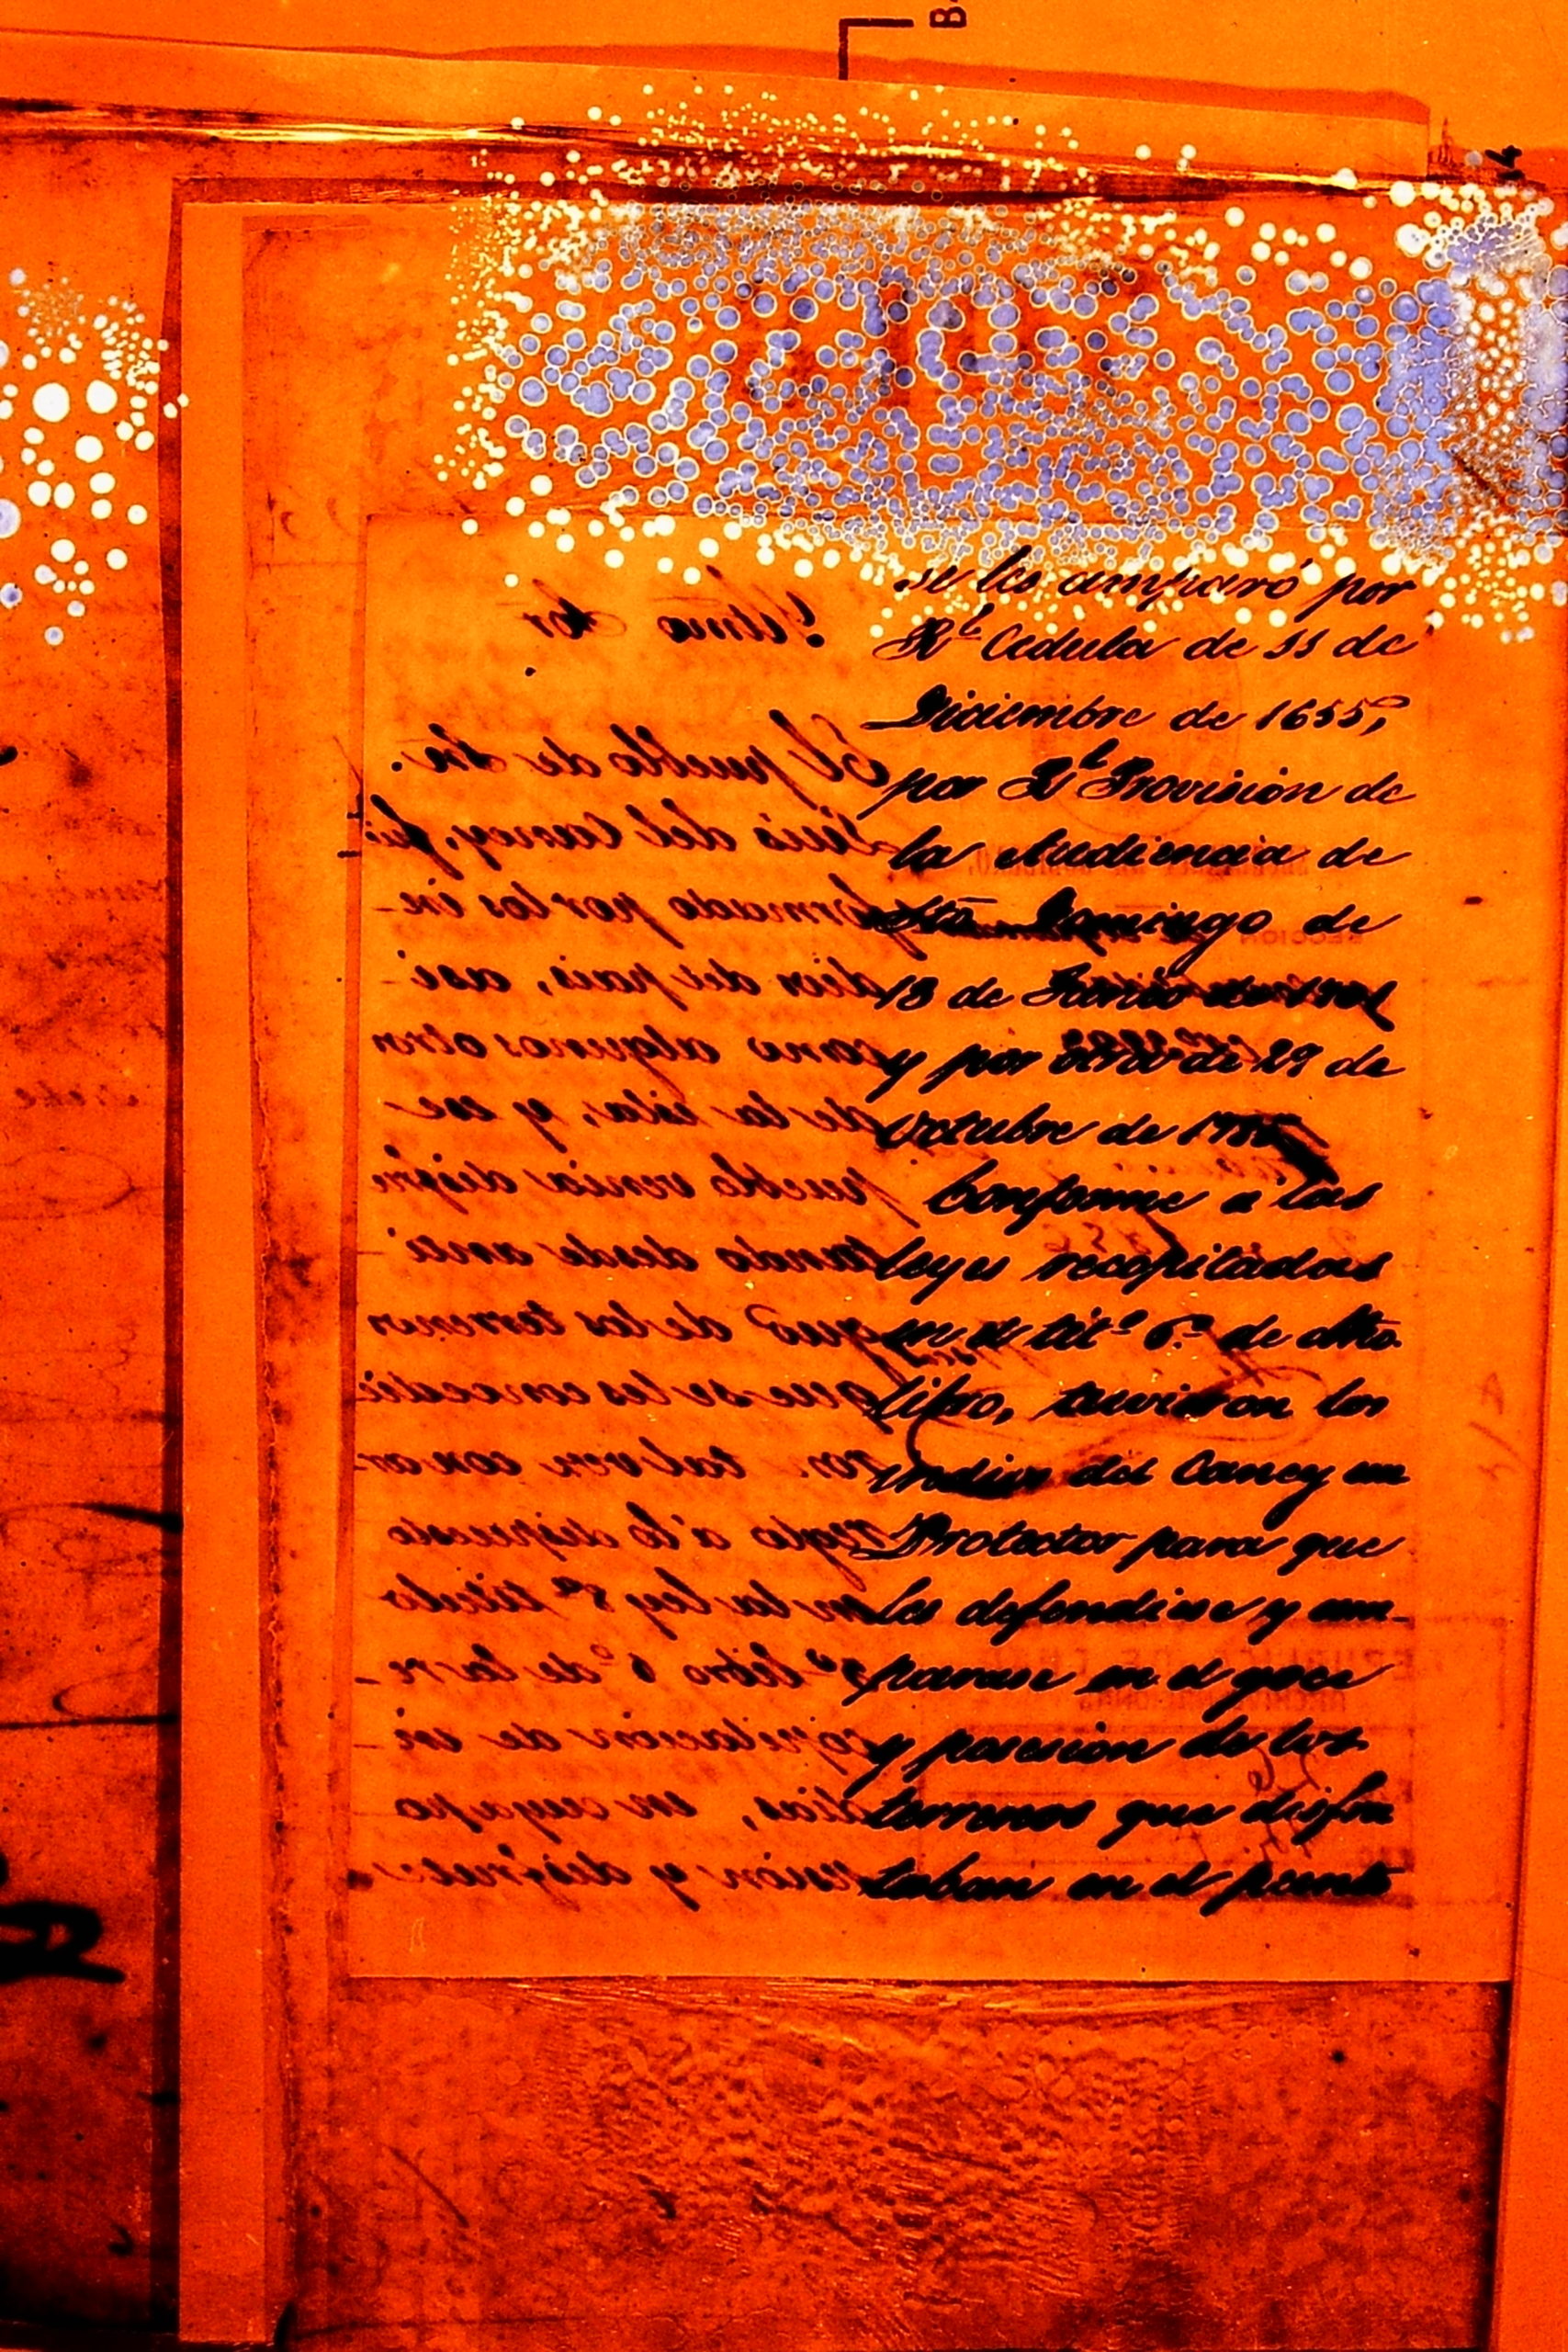 Ylmo Sor
El pueblo de Sn.
Luis del Caney, fué
formado por los in-
dios del pais, asi
como algunos otros
de la isla, y ese
pueblo venia disfru
tando desde anti-
guo de los terrenos
que se les concedie
ron tal vez con ar-
reglo á lo dispuesto
en la ley 8ª título
3º libro 6º de la re-
copilacion de in-
dias, en cuya po
sesion y disfrute
se les amparó por
Rl Cedula de 11 de
Diciembre de 1655,
por Rl Provision de
la Audiencia de
Sto Domingo de
13 de Junio de
y por otra de 29 de
Octubre de
Conforme a las
leyes recopiladas
en el titº 6º de dho.
libro, tuvieron los
indios del Caney un
Protector para que
les defendiese y am-
parase en el goce
y posesion de los
terrenos que disfru
taban en el punto